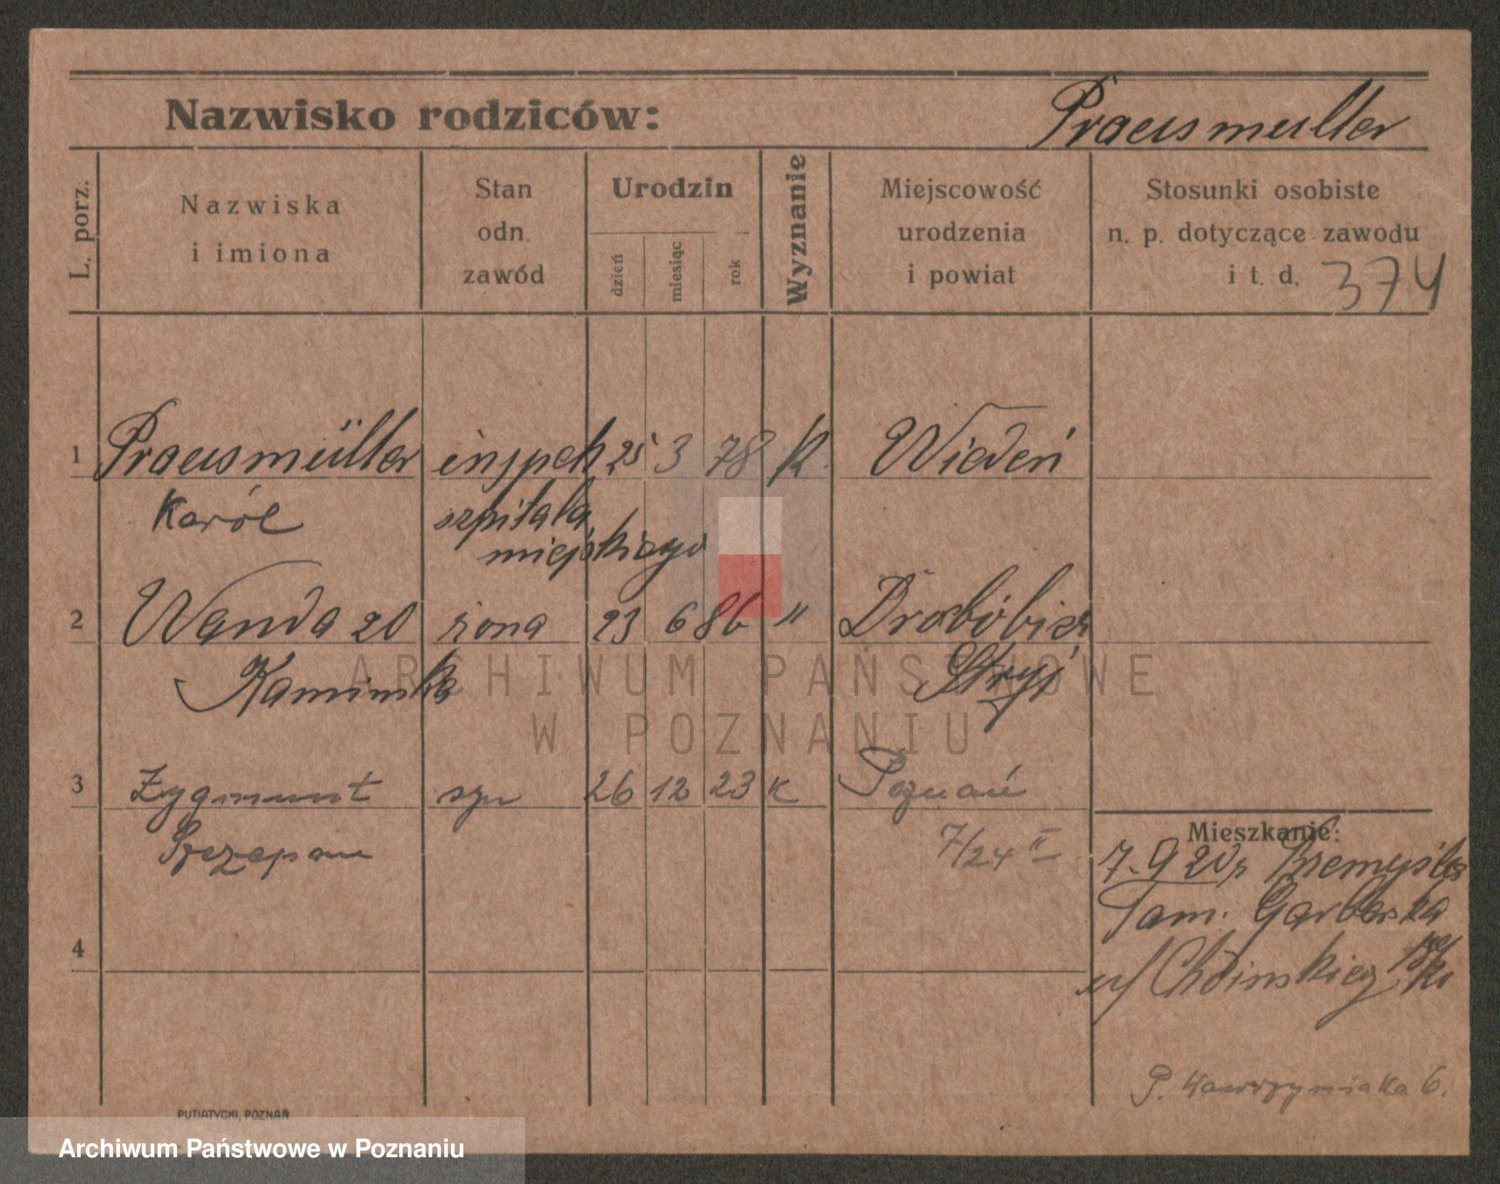 Nazwisko rodziców: Praeusmuller
L. porz.
Nazwiska
i imiona
Stan
odn.
zawód
Urodzin
dzień
miesiąc
rok
Wyznanie
Miejscowość
urodzenia
i powiat
Stosunki osobiste
n. p. dotyczące zawodu
i t. d. 374
1 Praeusmüller inspekt 25 3 78 K. Wiedeń
Karól szpitala
miejskiego
2 Wanda zd żona 23 6 86 "
Kamińska Stryj
ARCHIWUM PAŃSTWOWE
W POZNANIU
3 Zygmunt syn 26 12 23 K Poznań
Szczepan 7/24 II
Mieszkanie:
7.9 20 r Przemyśla
Tam. Garbarska
4
P. Wawrzyniaka 6.
PUTIATYCKI, POZNAŃ
Archiwum Państwowe w Poznaniu